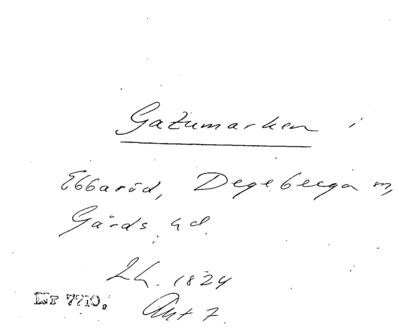 Gatumarken i
Ebbaröd, Degeberga sn,
Gärds hd.
Lh. 1824
Akt 7.